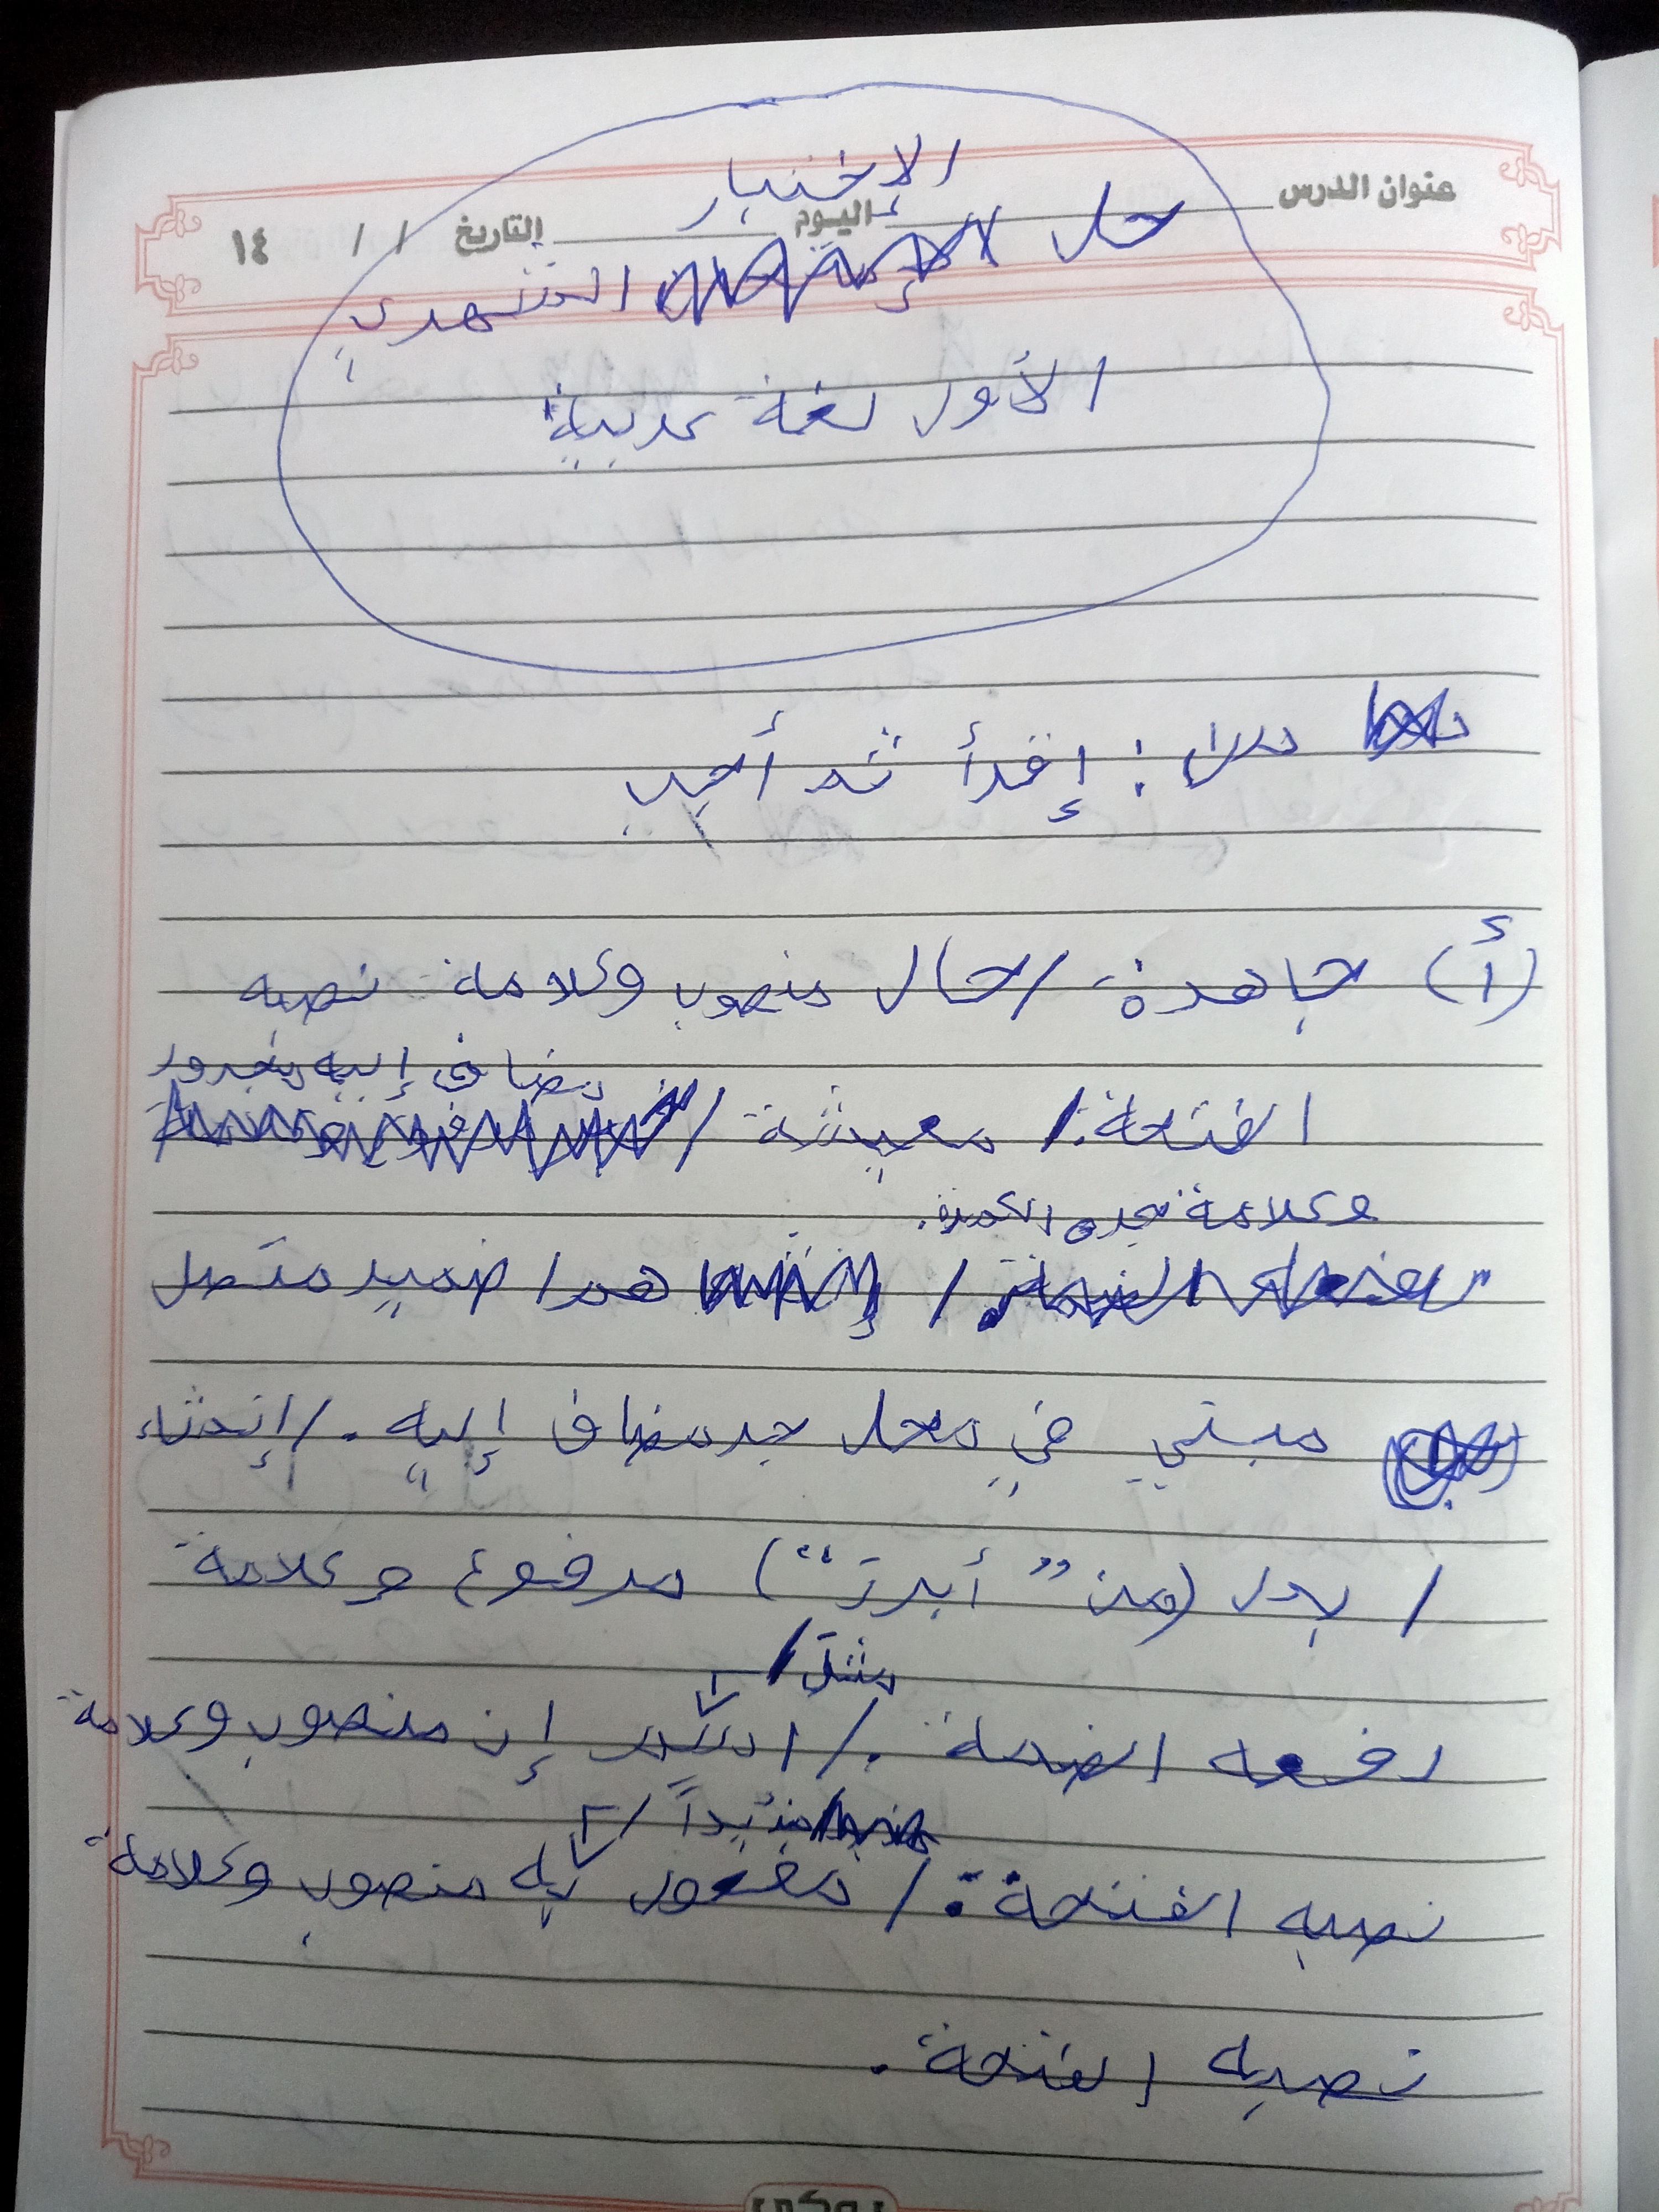 عنوان الدرس اليوم التاريخ / / ١٤
الإختبار
حل الشهري
الأول لغة عربية
س١: إقرأ ثم أجب
(أ) جاهدة / حال منصوب وعلامة نصبه
مضاف إليه مجرور
الفتحة. / معيشة /
وعلامة جره الكسرة.
/ هم / ضمير متصل
مبني في محل جر مضاف إليه. / إنشاء
/ بدل (من "أبرز") مرفوع وعلامة
مثل /
رفعه الضمة. / اسم إن منصوب وعلامة
نصبه الفتحة. / مفعول به منصوب وعلامة
نصبه الفتحة.